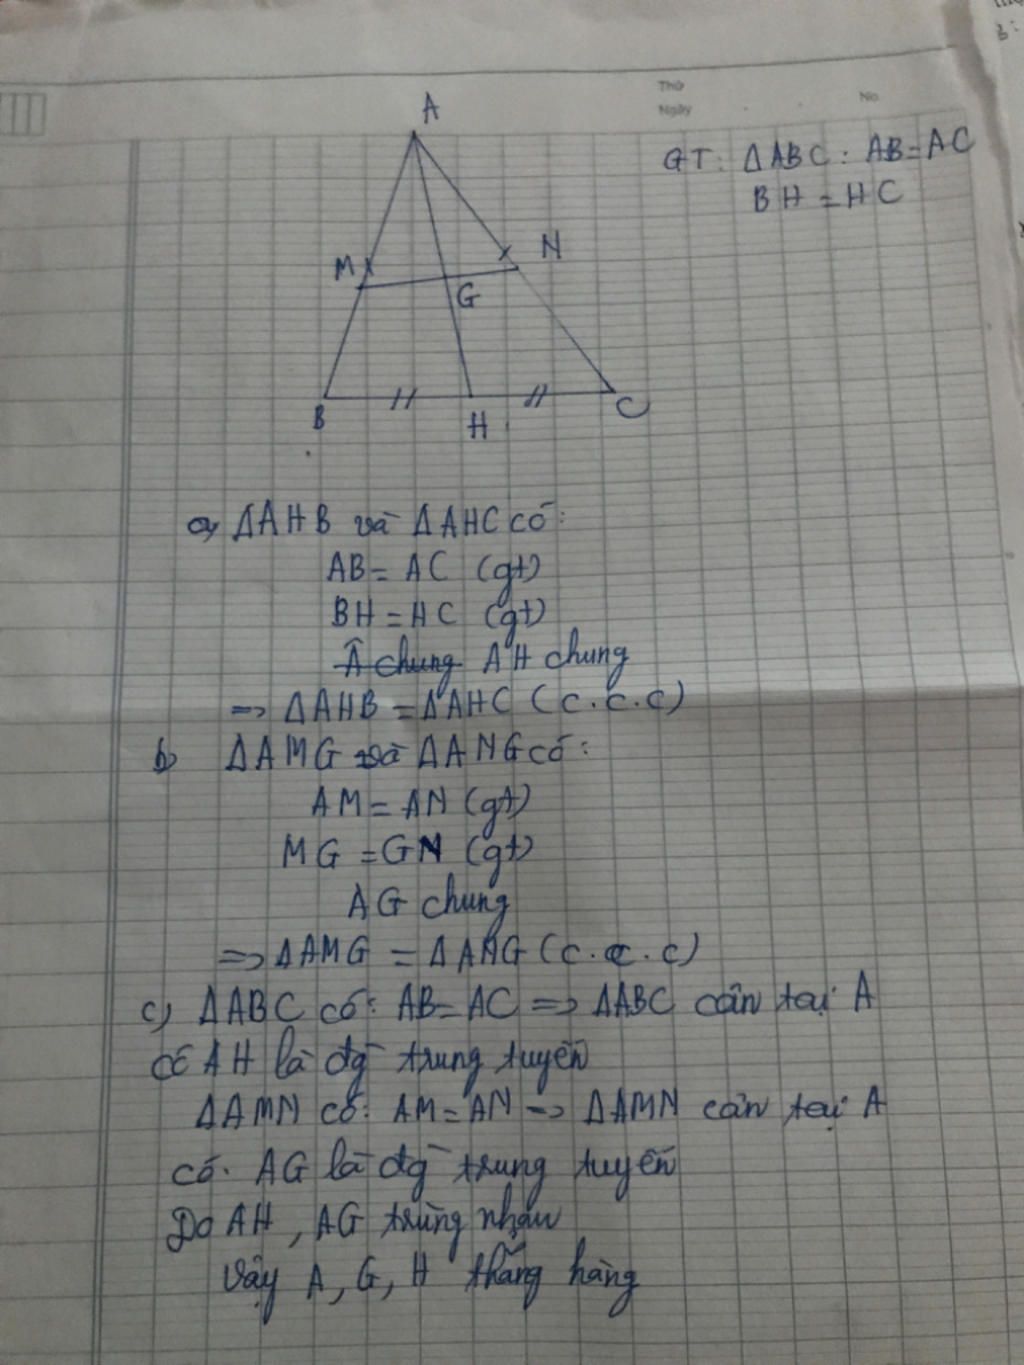 Thứ
Ngày
No.
A
GT: ΔABC: AB=AC
BH = HC
M
N
G
B
H
C
a) ΔAHB và ΔAHC có:
AB = AC (gt)
BH = HC (gt)
Â chung AH chung
=> ΔAHB = ΔAHC (c.c.c)
b) ΔAMG và ΔANG có:
AM = AN (gt)
MG = GN (gt)
AG chung
=> ΔAMG = ΔANG (c.c.c)
c) ΔABC có: AB = AC => ΔABC cân tại A
Có AH là đg trung tuyến
ΔAMN có: AM = AN => ΔAMN cân tại A
có. AG là đg trung tuyến
Do AH, AG trùng nhau
Vậy A, G, H thẳng hàng